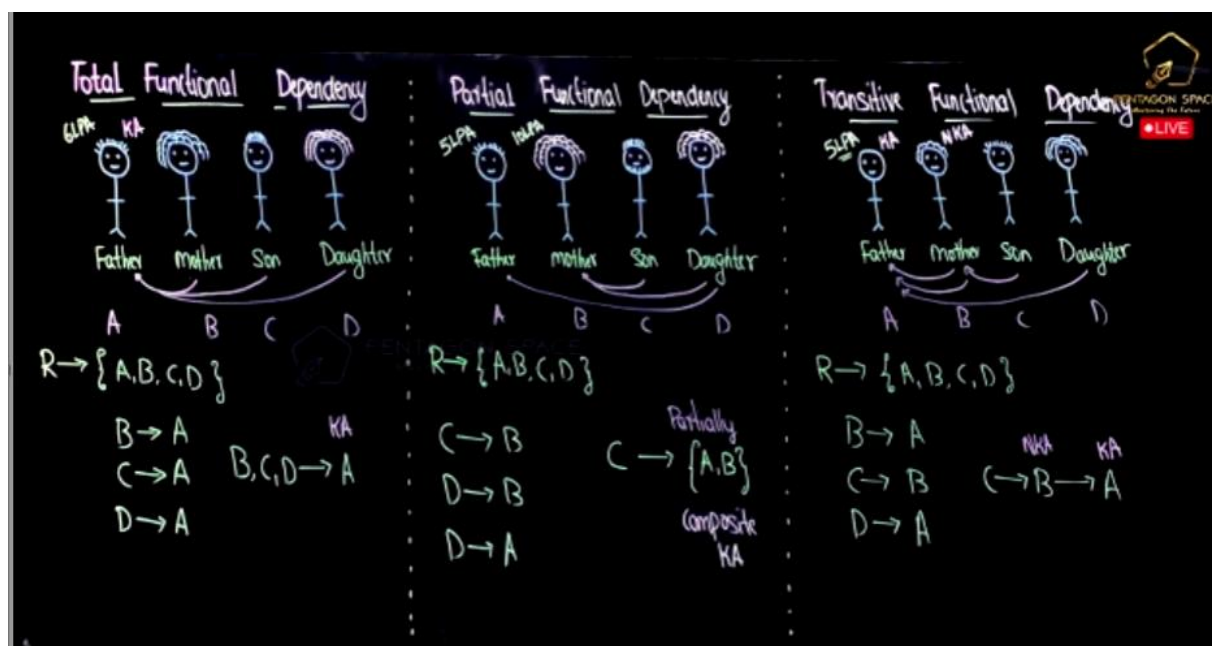 Total Functional Dependency
6LPA KA
Father Mother Son Daughter
A B C D
R → {A, B, C, D}
B → A
C → A
D → A
KA
B, C, D → A
Partial Functional Dependency
5LPA 10LPA
Father Mother Son Daughter
A B C D
R → {A, B, C, D}
C → B
D → B
D → A
Partially
C → {A, B}
Composite
KA
Transitive Functional Dependency
5LPA KA NKA
Father Mother Son Daughter
A B C D
R → {A, B, C, D}
B → A
C → B
D → A
NKA KA
C → B → A
PENTAGON SPACE
LIVE
PENTAGON SPACE